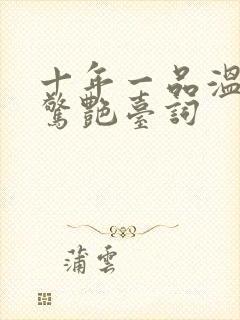 十年一品溫
驚艷臺詞
蒲雲